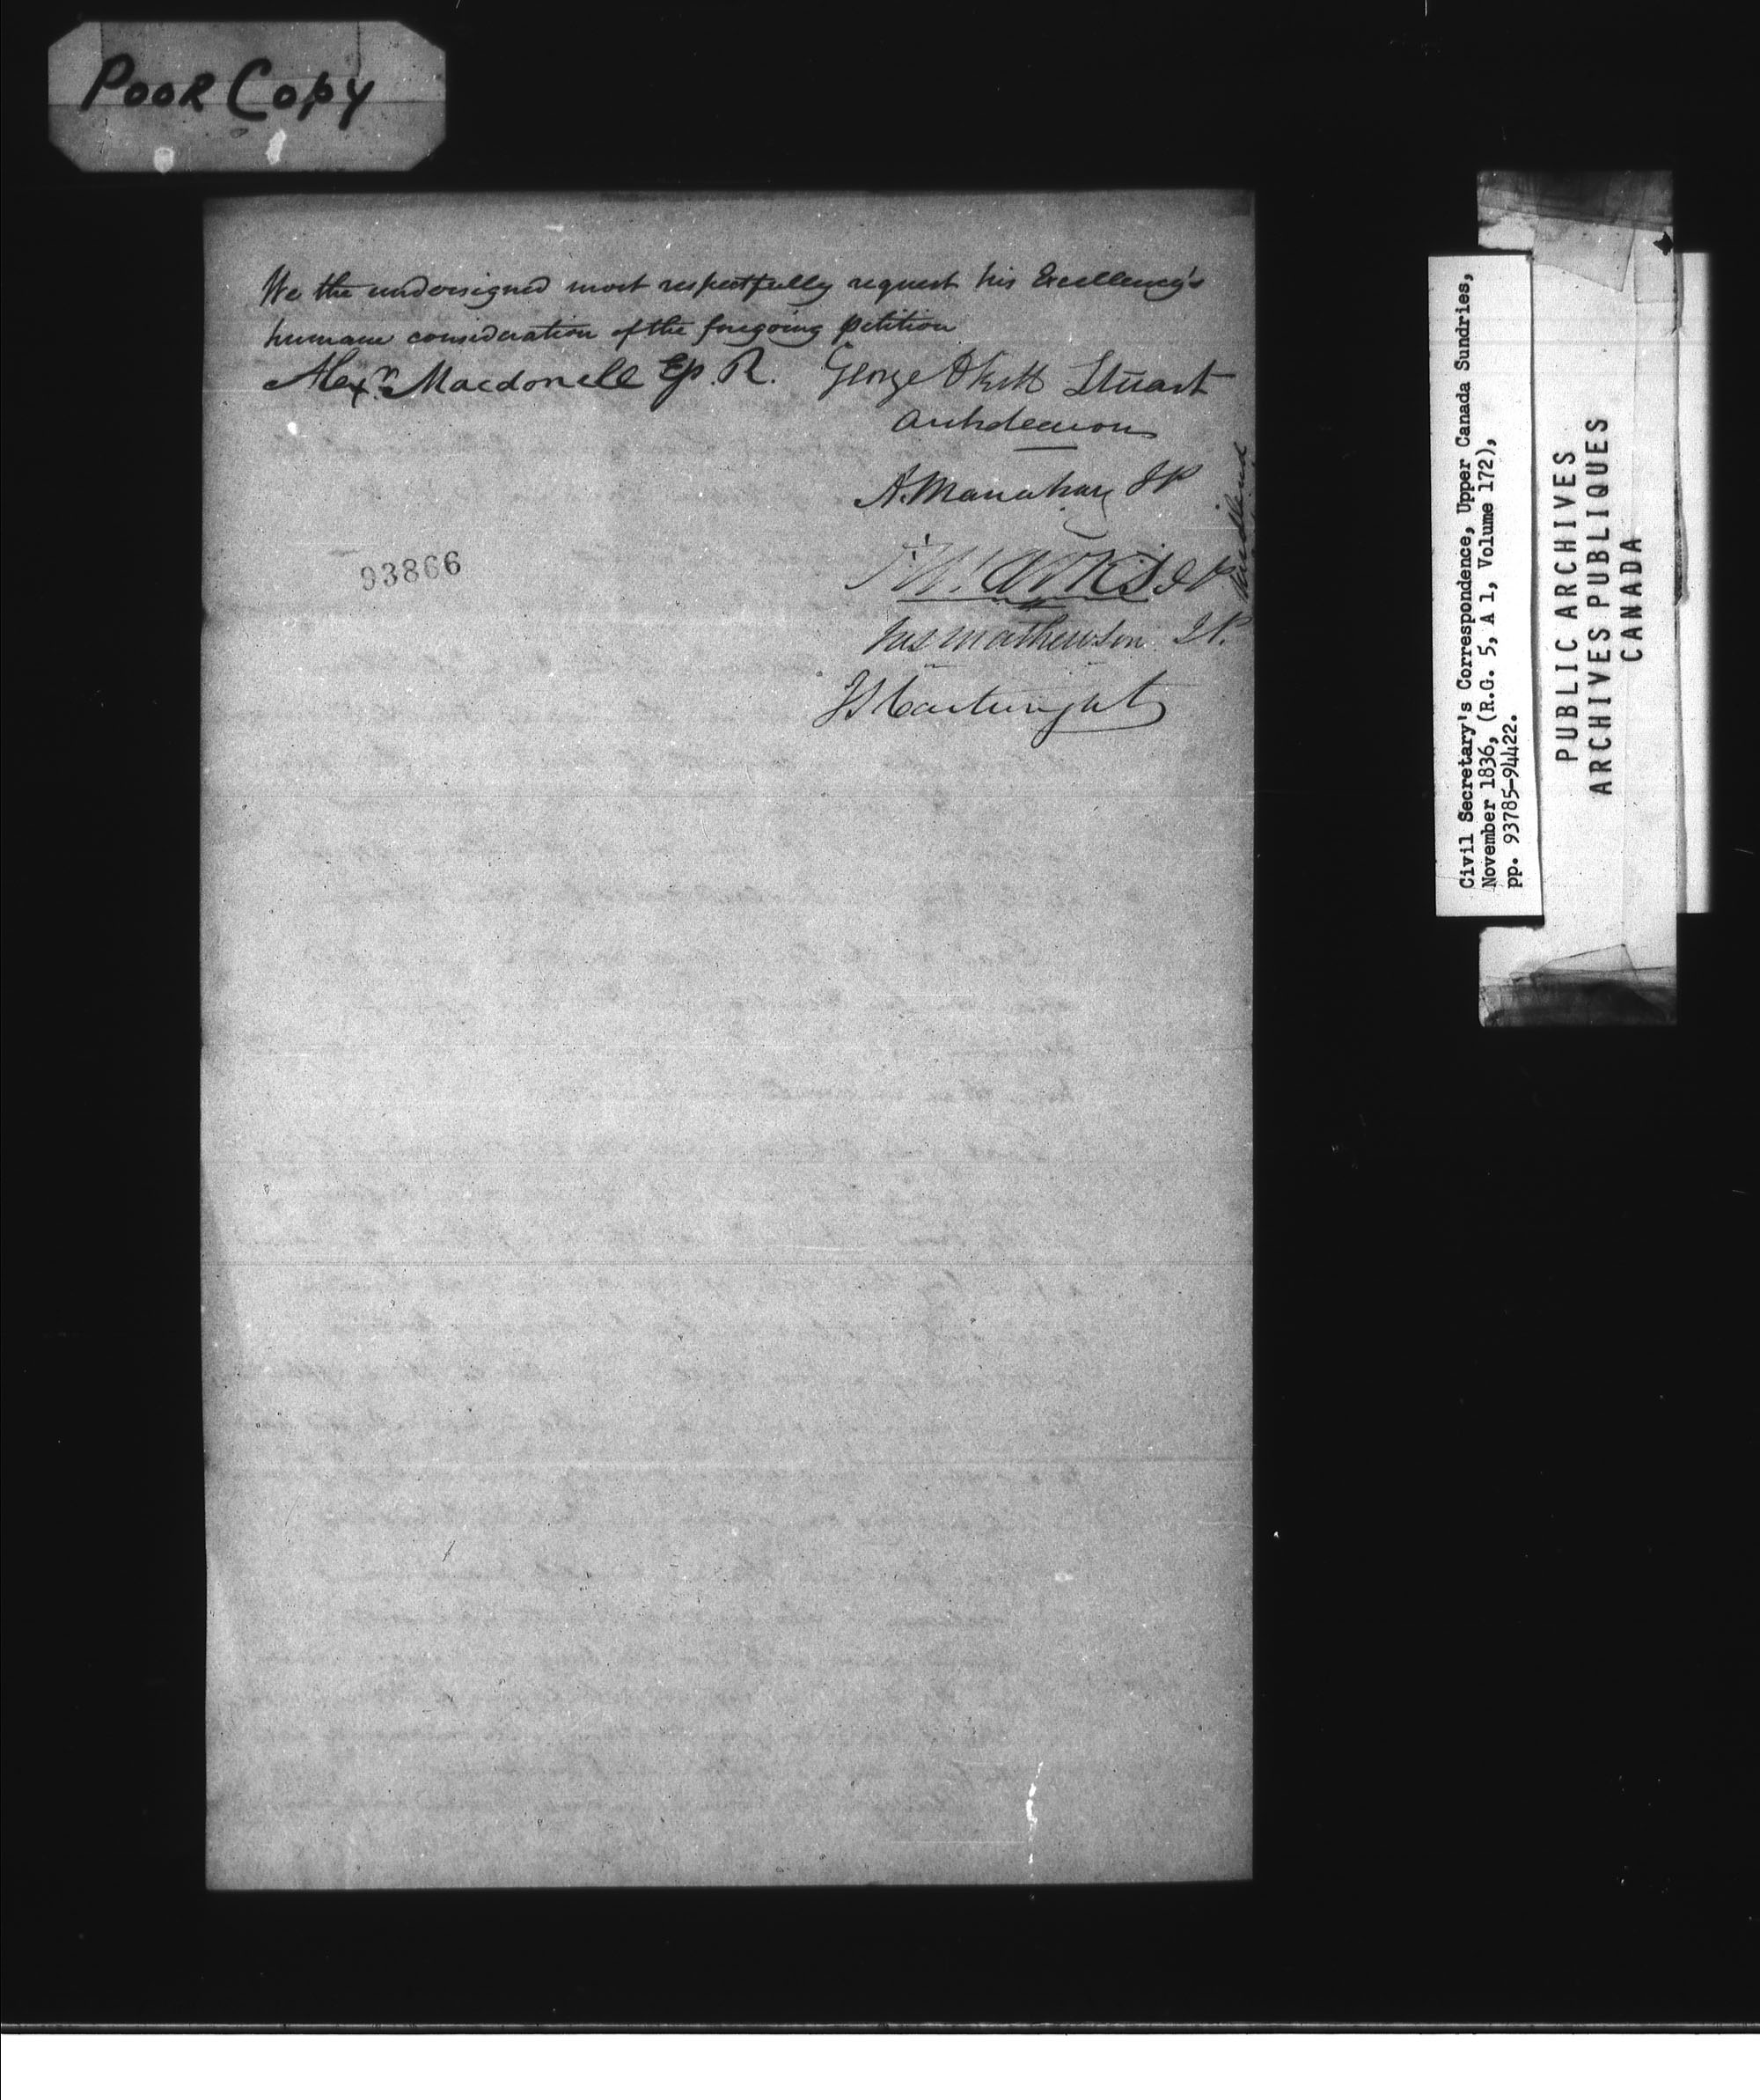 Poor Copy
We the undersigned most respectfully request his Excellency's
humane consideration of the foregoing petition
Alexr. Macdonell Ep. R.
George Okill Stuart
Archdeacon
A. Manahan JP
93866
Marks J P
Jas Mathewson J.P.
JS Cartwright
Civil Secretary's Correspondence, Upper Canada Sundries,
November 1836, (R.G. 5, A 1, Volume 172),
pp. 93785-94422.
PUBLIC ARCHIVES
ARCHIVES PUBLIQUES
CANADA